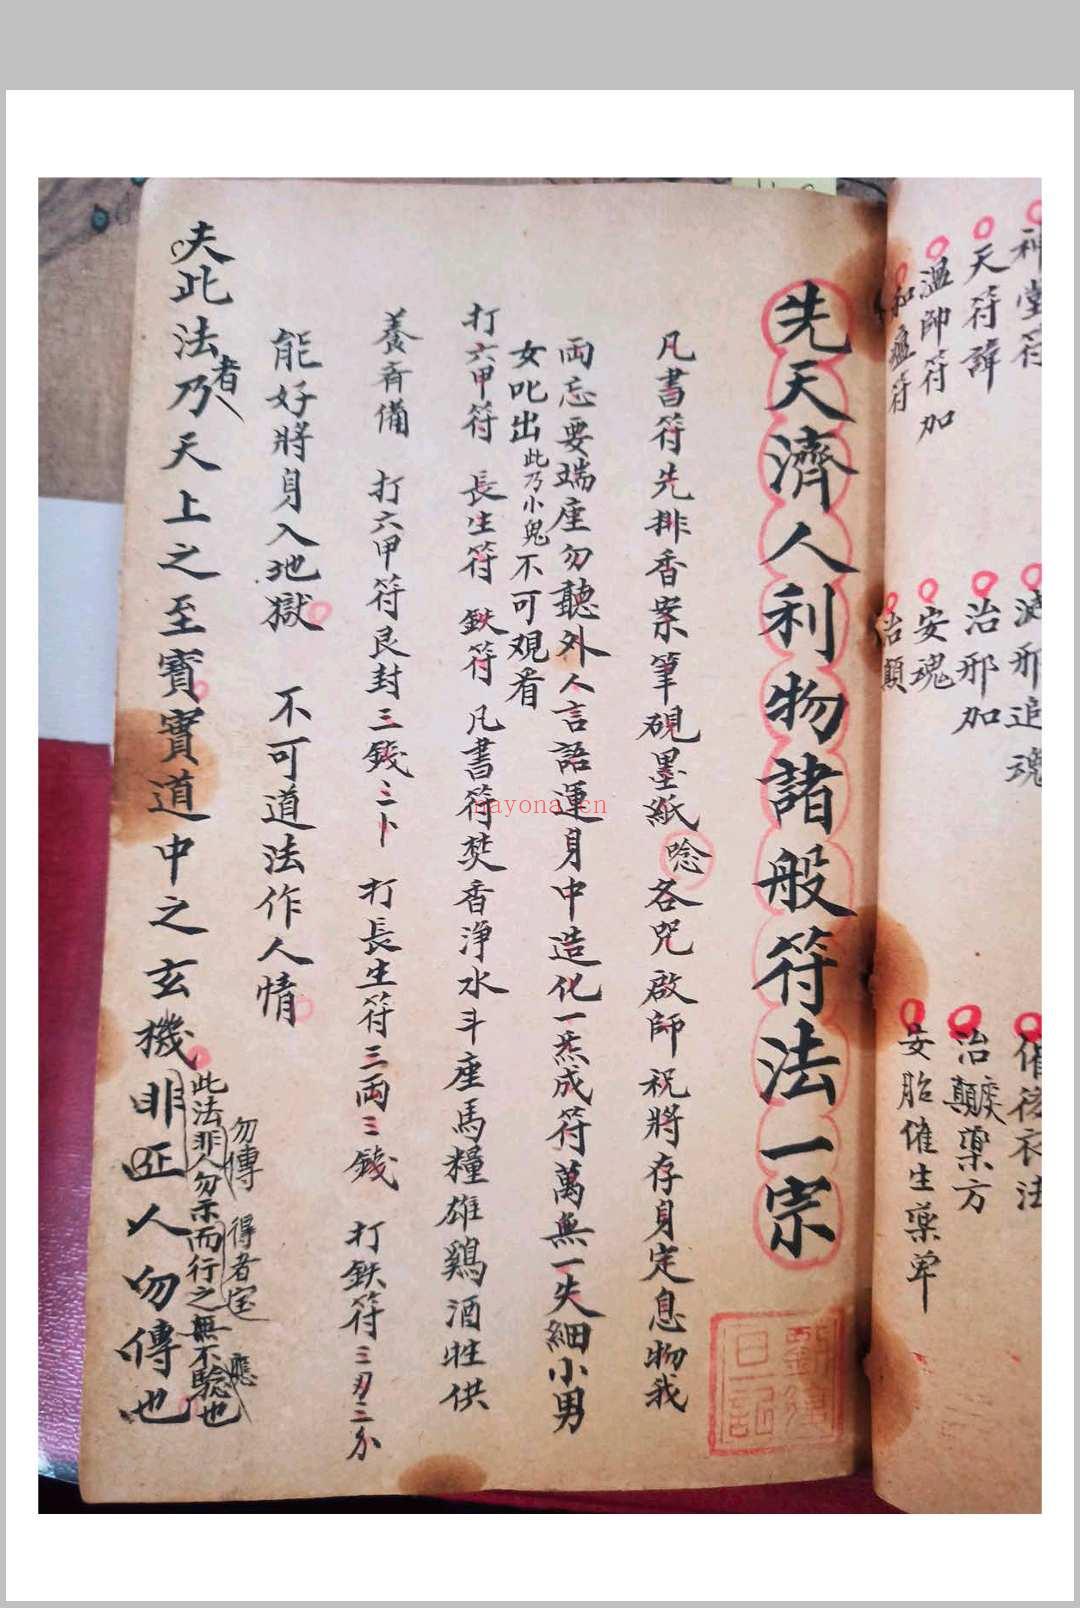 神堂符
天符諱
溫帥符加
和瘟符
治邪加
安魂
治顛
治癲藥方
安胎催生藥單
先天濟人利物諸般符法一宗
凡書符先排香案筆硯墨紙唸各咒啟師祝將存身定息物我
両忘要端座勿聽外人言語運身中造化一炁成符萬無一失細小男
女叱出此乃小鬼不可观看
打六甲符 長生符 鉄符 凡書符焚香淨水斗座馬糧雄鷄酒牲供
養齊備 打六甲符艮封三錢三卜 打長生符三両三錢 打鉄符三刃三分
能好將身入地獄 不可道法作人情
夫此法者乃天上之至寶實道中之玄機非正人勿傳也
此法非人勿示而行之無不驗也
勿傳 得者宝 應
nayona.cn